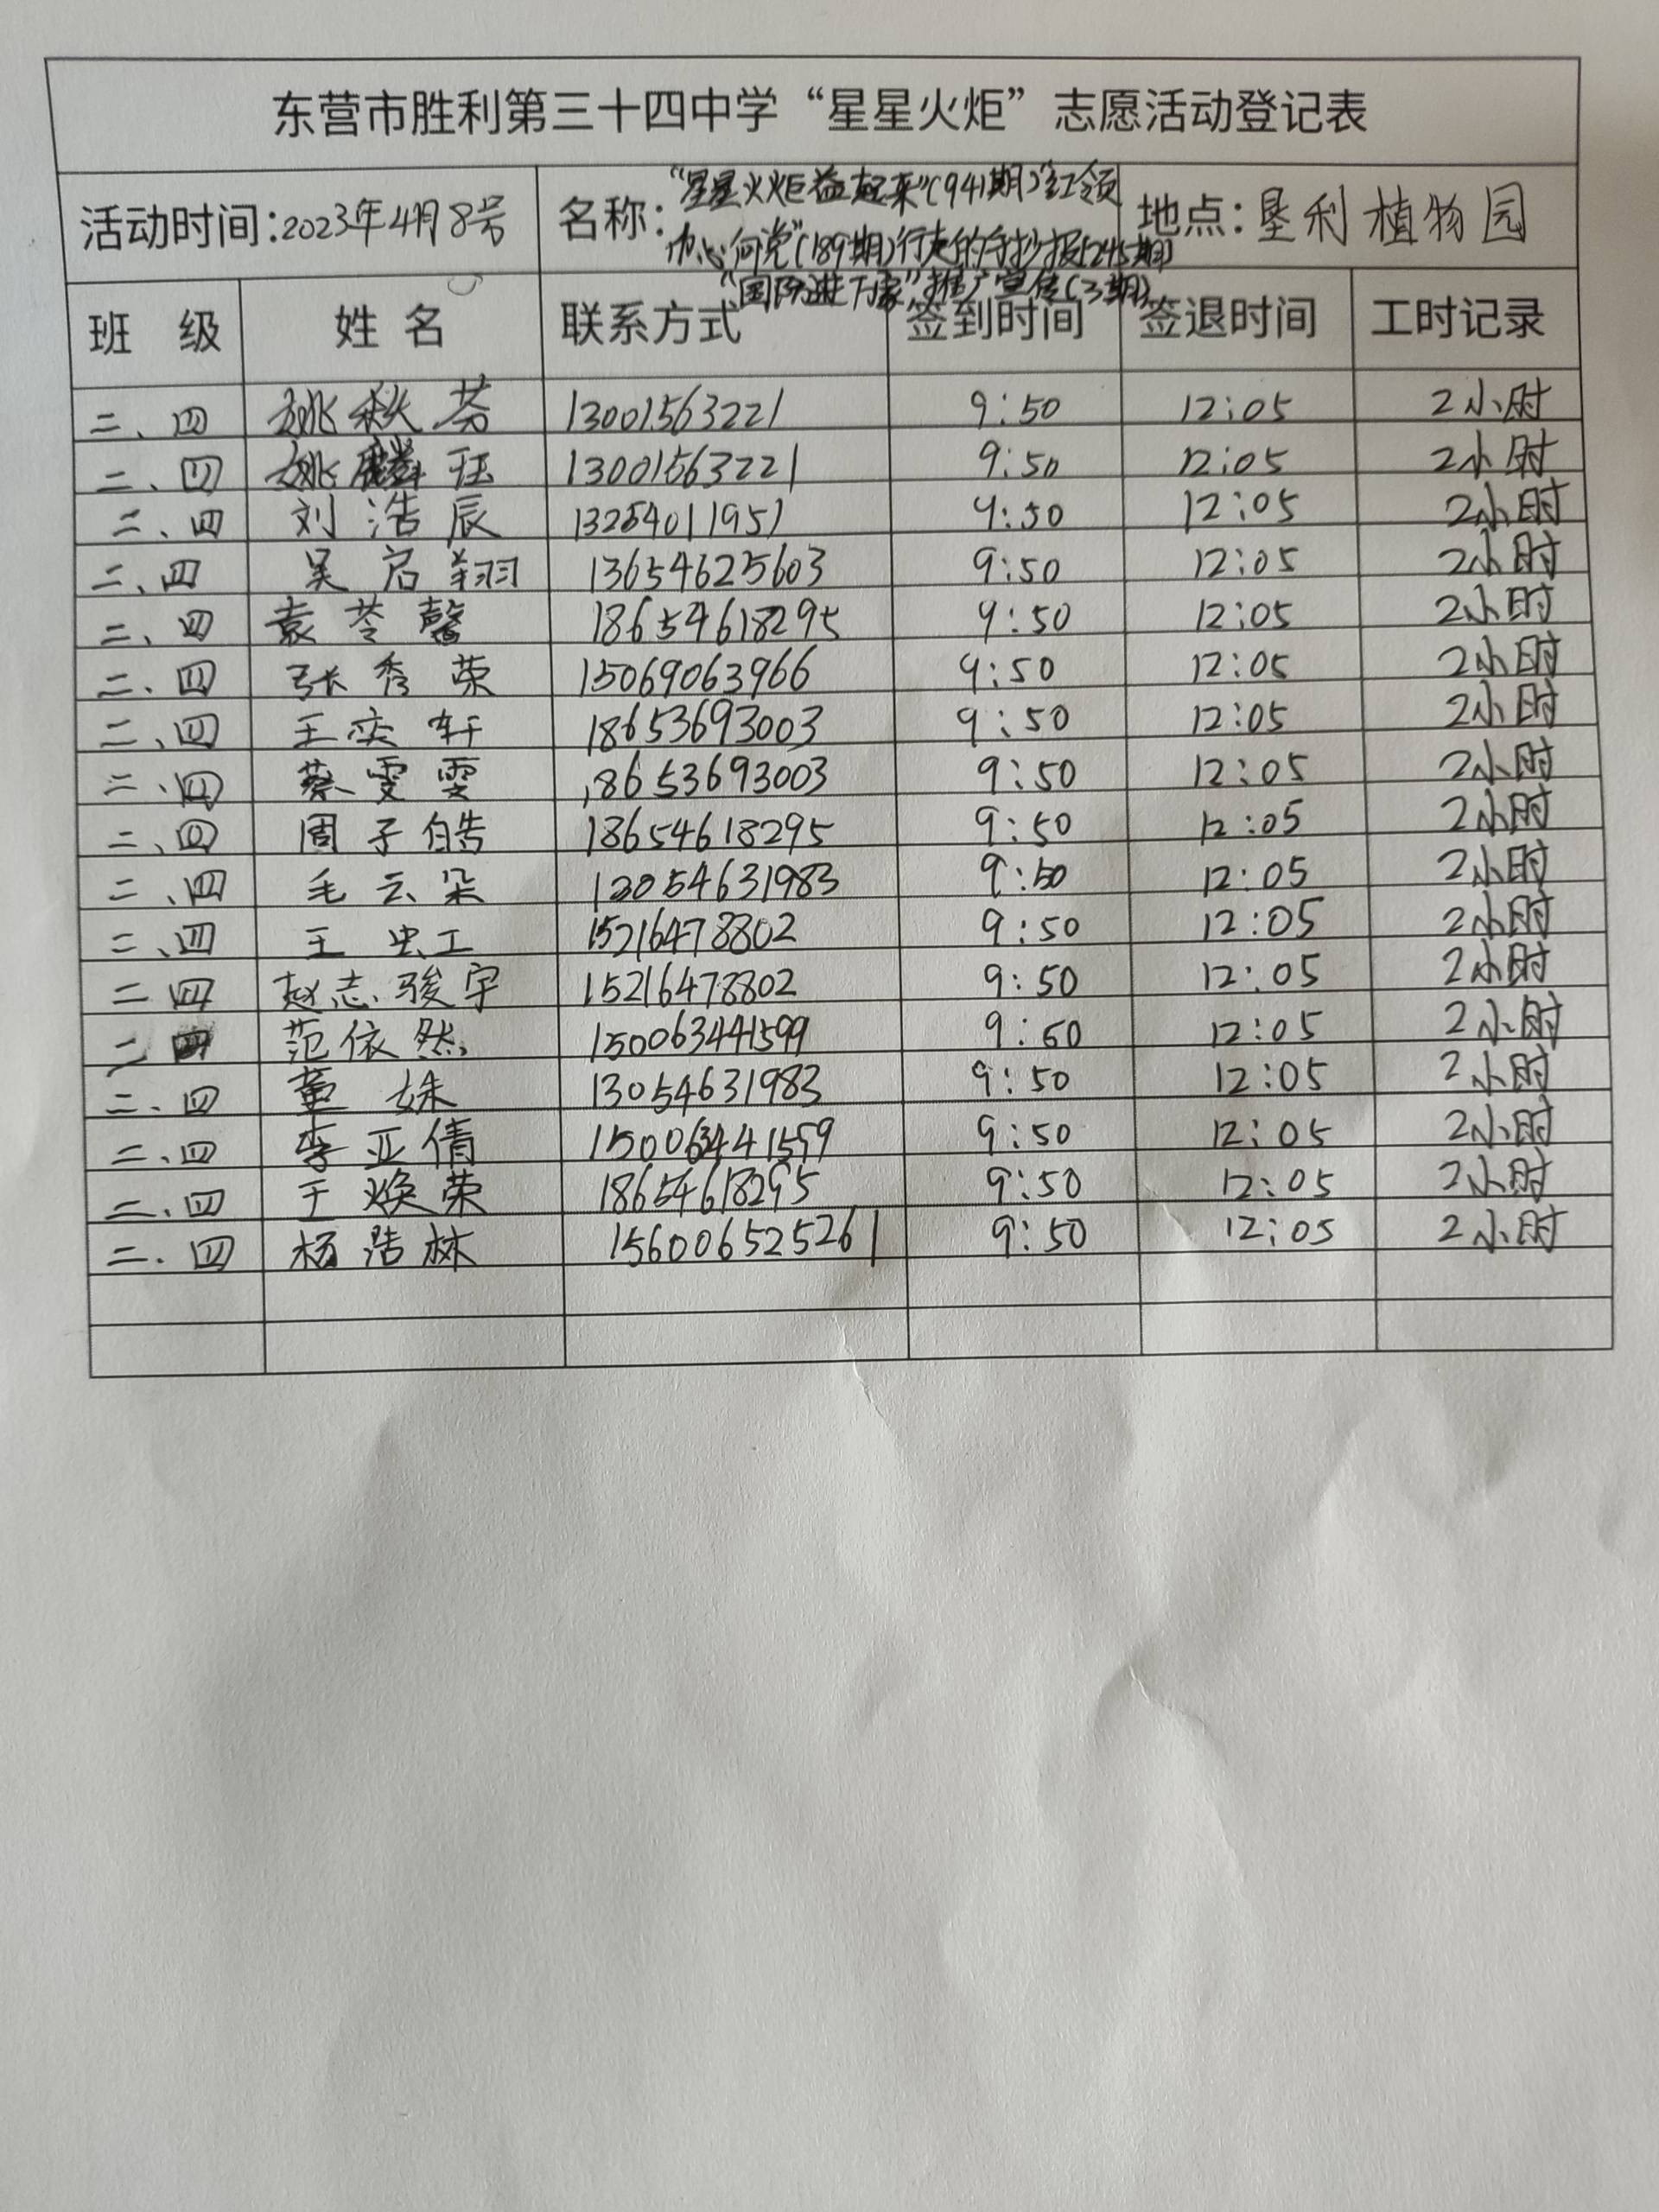 东营市胜利第三十四中学“星星火炬”志愿活动登记表
活动时间:2023年4月8号 名称: “星星火炬益起来”(941期)“红领 地点:垦利植物园
巾心向党”(189期)行走的手抄报(245期)
推广宣传(3期)
班 级 姓 名 联系方式 签到时间 签退时间 工时记录
二、四 姚秋芬 13001563221 9:50 12:05 2小时
二、四 姚麟珏 13001563221 9:50 12:05 2小时
二、四 刘浩辰 13254011951 9:50 12:05 2小时
二、四 吴启翔 13654625603 9:50 12:05 2小时
二、四 袁苓馨 18654618295 9:50 12:05 2小时
二、四 张秀荣 15069063966 9:50 12:05 2小时
二、四 王奕轩 18653693003 9:50 12:05 2小时
二、四 蔡雯雯 18653693003 9:50 12:05 2小时
二、四 周子皓 18654618295 9:50 12:05 2小时
二、四 毛云朵 13054631983 9:50 12:05 2小时
二、四 王虹 15216478802 9:50 12:05 2小时
二 四 赵志骏宇 15216478802 9:50 12:05 2小时
二 四 范依然 150063441599 9:50 12:05 2小时
二、四 董姝 13054631983 9:50 12:05 2小时
二、四 李亚倩 150063441599 9:50 12:05 2小时
二、四 于焕荣 18654618295 9:50 12:05 2小时
二、四 杨浩林 156006525261 9:50 12:05 2小时